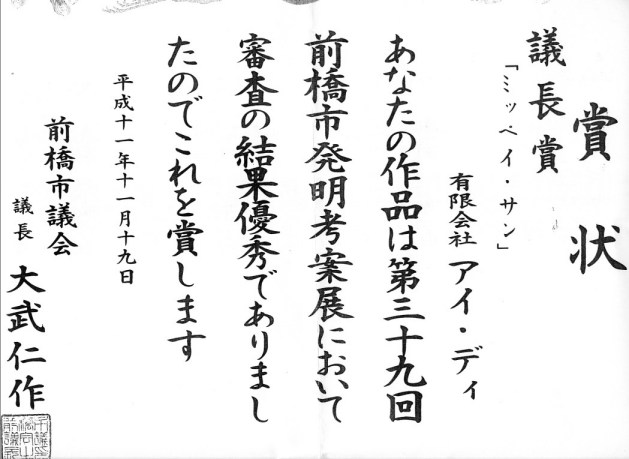 賞状
議長賞
「ミッペイ・サン」
有限会社 アイ・ディ
あなたの作品は第三十九回
前橋市発明考案展において
審査の結果優秀でありまし
たのでこれを賞します
平成十一年十一月十九日
前橋市議会
議長 大武仁作